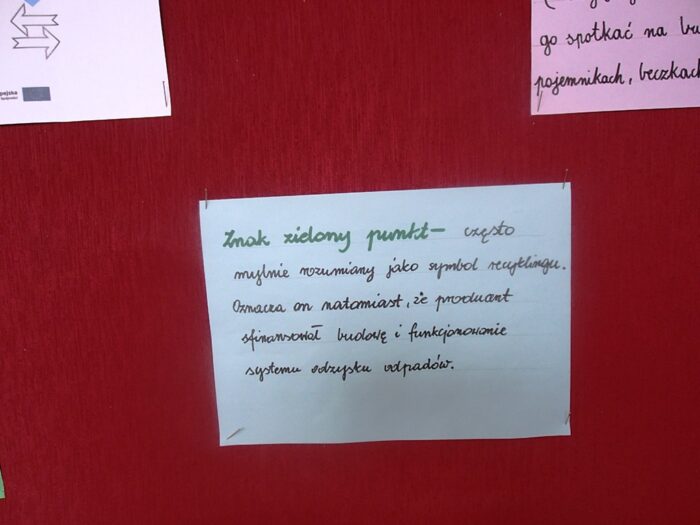 go spotkać na bu
pojemnikach, beczkach
Znak zielony punkt – często
mylnie rozumiany jako symbol recyklingu.
Oznacza on natomiast, że producent
sfinansował budowę i funkcjonowanie
systemu odzysku odpadów.